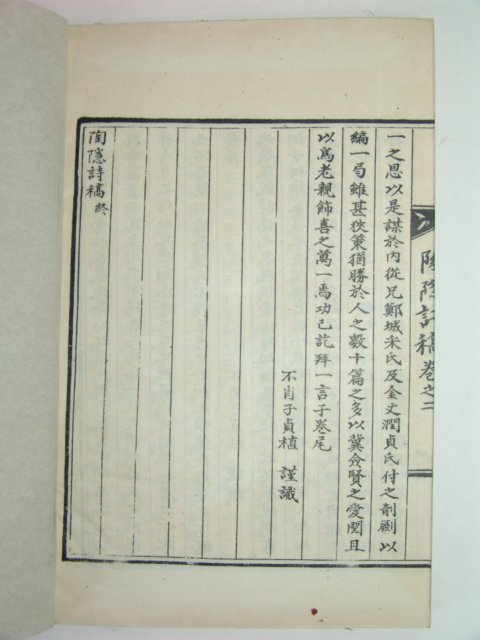 陶隱詩稿卷之二
一之思以是謀於內從兄鄭城來氏及金丈潤貞氏付之剞劂以
編一局雖甚狹策猶勝於人之數十篇之多以冀僉賢之愛閱且
以爲老親飾喜之萬一焉功已訖拜一言于卷尾
不肖子貞植 謹識
陶隱詩稿 終